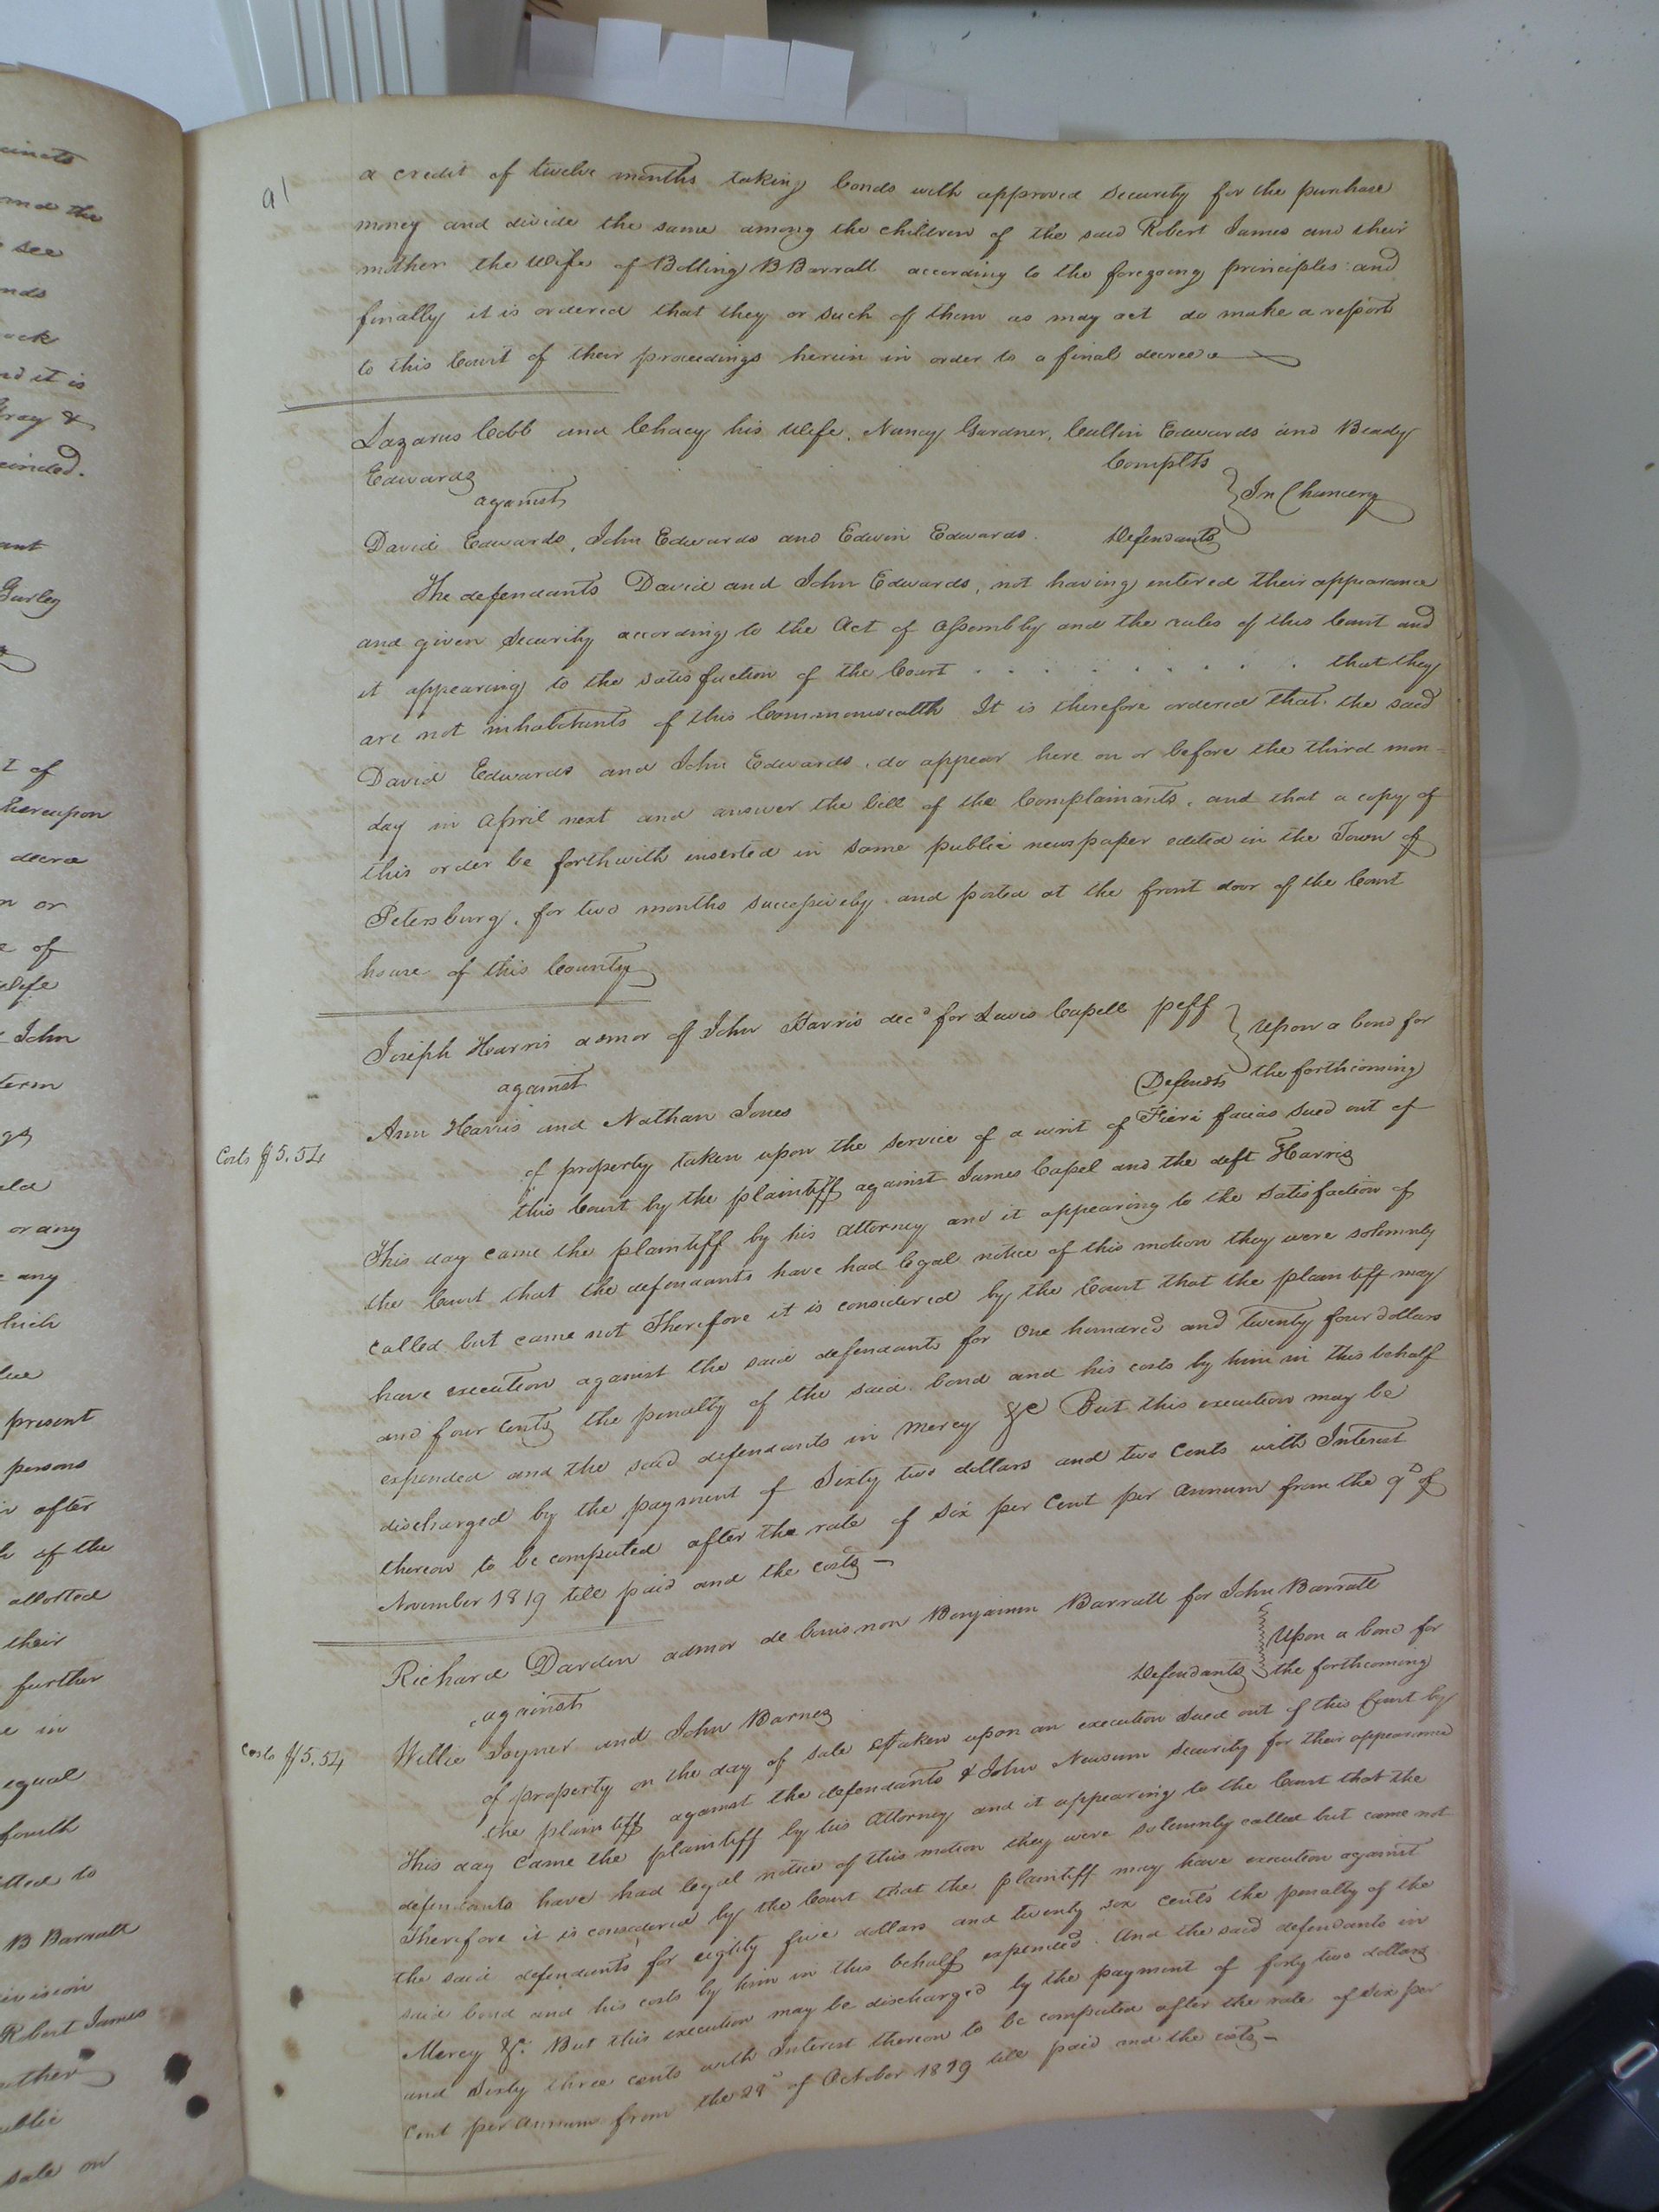 91
a credit of twelve months taking bonds with approved security for the purchase
money and divide the same among the children of the said Robert James and their
mother the wife of Bolling B Barratt according to the foregoing principles and
finally it is ordered that they or such of them as may act do make a report
to this Court of their proceedings herein in order to a final decree
Lazarus Cobb and Chacy his wife, Nancy Gardner, Cullin Edwards and Beady
Edwards Complts
against
In Chancery
David Edwards, John Edwards and Edwin Edwards. Defendants
The defendants David and John Edwards, not having entered their appearance
and given security according to the Act of Assembly and the rules of this Court and
it appearing to the satisfaction of the Court . . . . . . . . . . that they
are not inhabitants of this Commonwealth It is therefore ordered that the said
David Edwards and John Edwards, do appear here on or before the third mon-
day in April next and answer the bill of the Complainants, and that a copy of
this order be forthwith inserted in some public newspaper edited in the Town of
Petersburg, for two months successively and posted at the front door of the Court
house of this County
Joseph Harris admor of John Harris decd for Lewis Capell peff
Upon a bond for
against
Defendts the forthcoming
Ann Harris and Nathan Jones
Costs $5.54
of property taken upon the service of a writ of Fieri facias sued out of
this Court by the plaintiff against James Capel and the deft Harris
This day came the plaintiff by his attorney and it appearing to the satisfaction of
the Court that the defendants have had legal notice of this motion they were solemnly
called but came not Therefore it is considered by the Court that the plaintiff may
have execution against the said defendants for One hundred and twenty four dollars
and four Cents the penalty of the said bond and his costs by him in this behalf
expended and the said defendants in mercy &c But this execution may be
discharged by the payment of Sixty two dollars and two Cents with Interest
thereon to be computed after the rate of six per Cent per annum from the 9th of
November 1819 till paid and the costs
Richard Darden admor de bonis non Benjamin Barratt for John Barratt
Upon a bond for
against
Defendants the forthcoming
Willie Joyner and John Barnes
Costs $5.54
of property on the day of sale taken upon an execution sued out of this Court by
the plaintiff against the defendants & John Newsum security for their appearance
This day came the plaintiff by his attorney and it appearing to the Court that the
defendants have had legal notice of this motion they were solemnly called but came not
Therefore it is considered by the Court that the plaintiff may have execution against
the said defendants for eighty five dollars and twenty six cents the penalty of the
said bond and his costs by him in this behalf expended. And the said defendants in
Mercy &c. But this execution may be discharged by the payment of forty two dollars
and Sixty three cents with Interest thereon to be computed after the rate of six per
Cent per annum from the of October 1819 till paid and the costs
and the
see
it is
Gray &
Gurley
of
thereupon
decree
or
of
John
term
or any
any
which
present
persons
after
of the
allotted
their
further
in
equal
fourth
to
B Barratt
division
Robert James
sale on